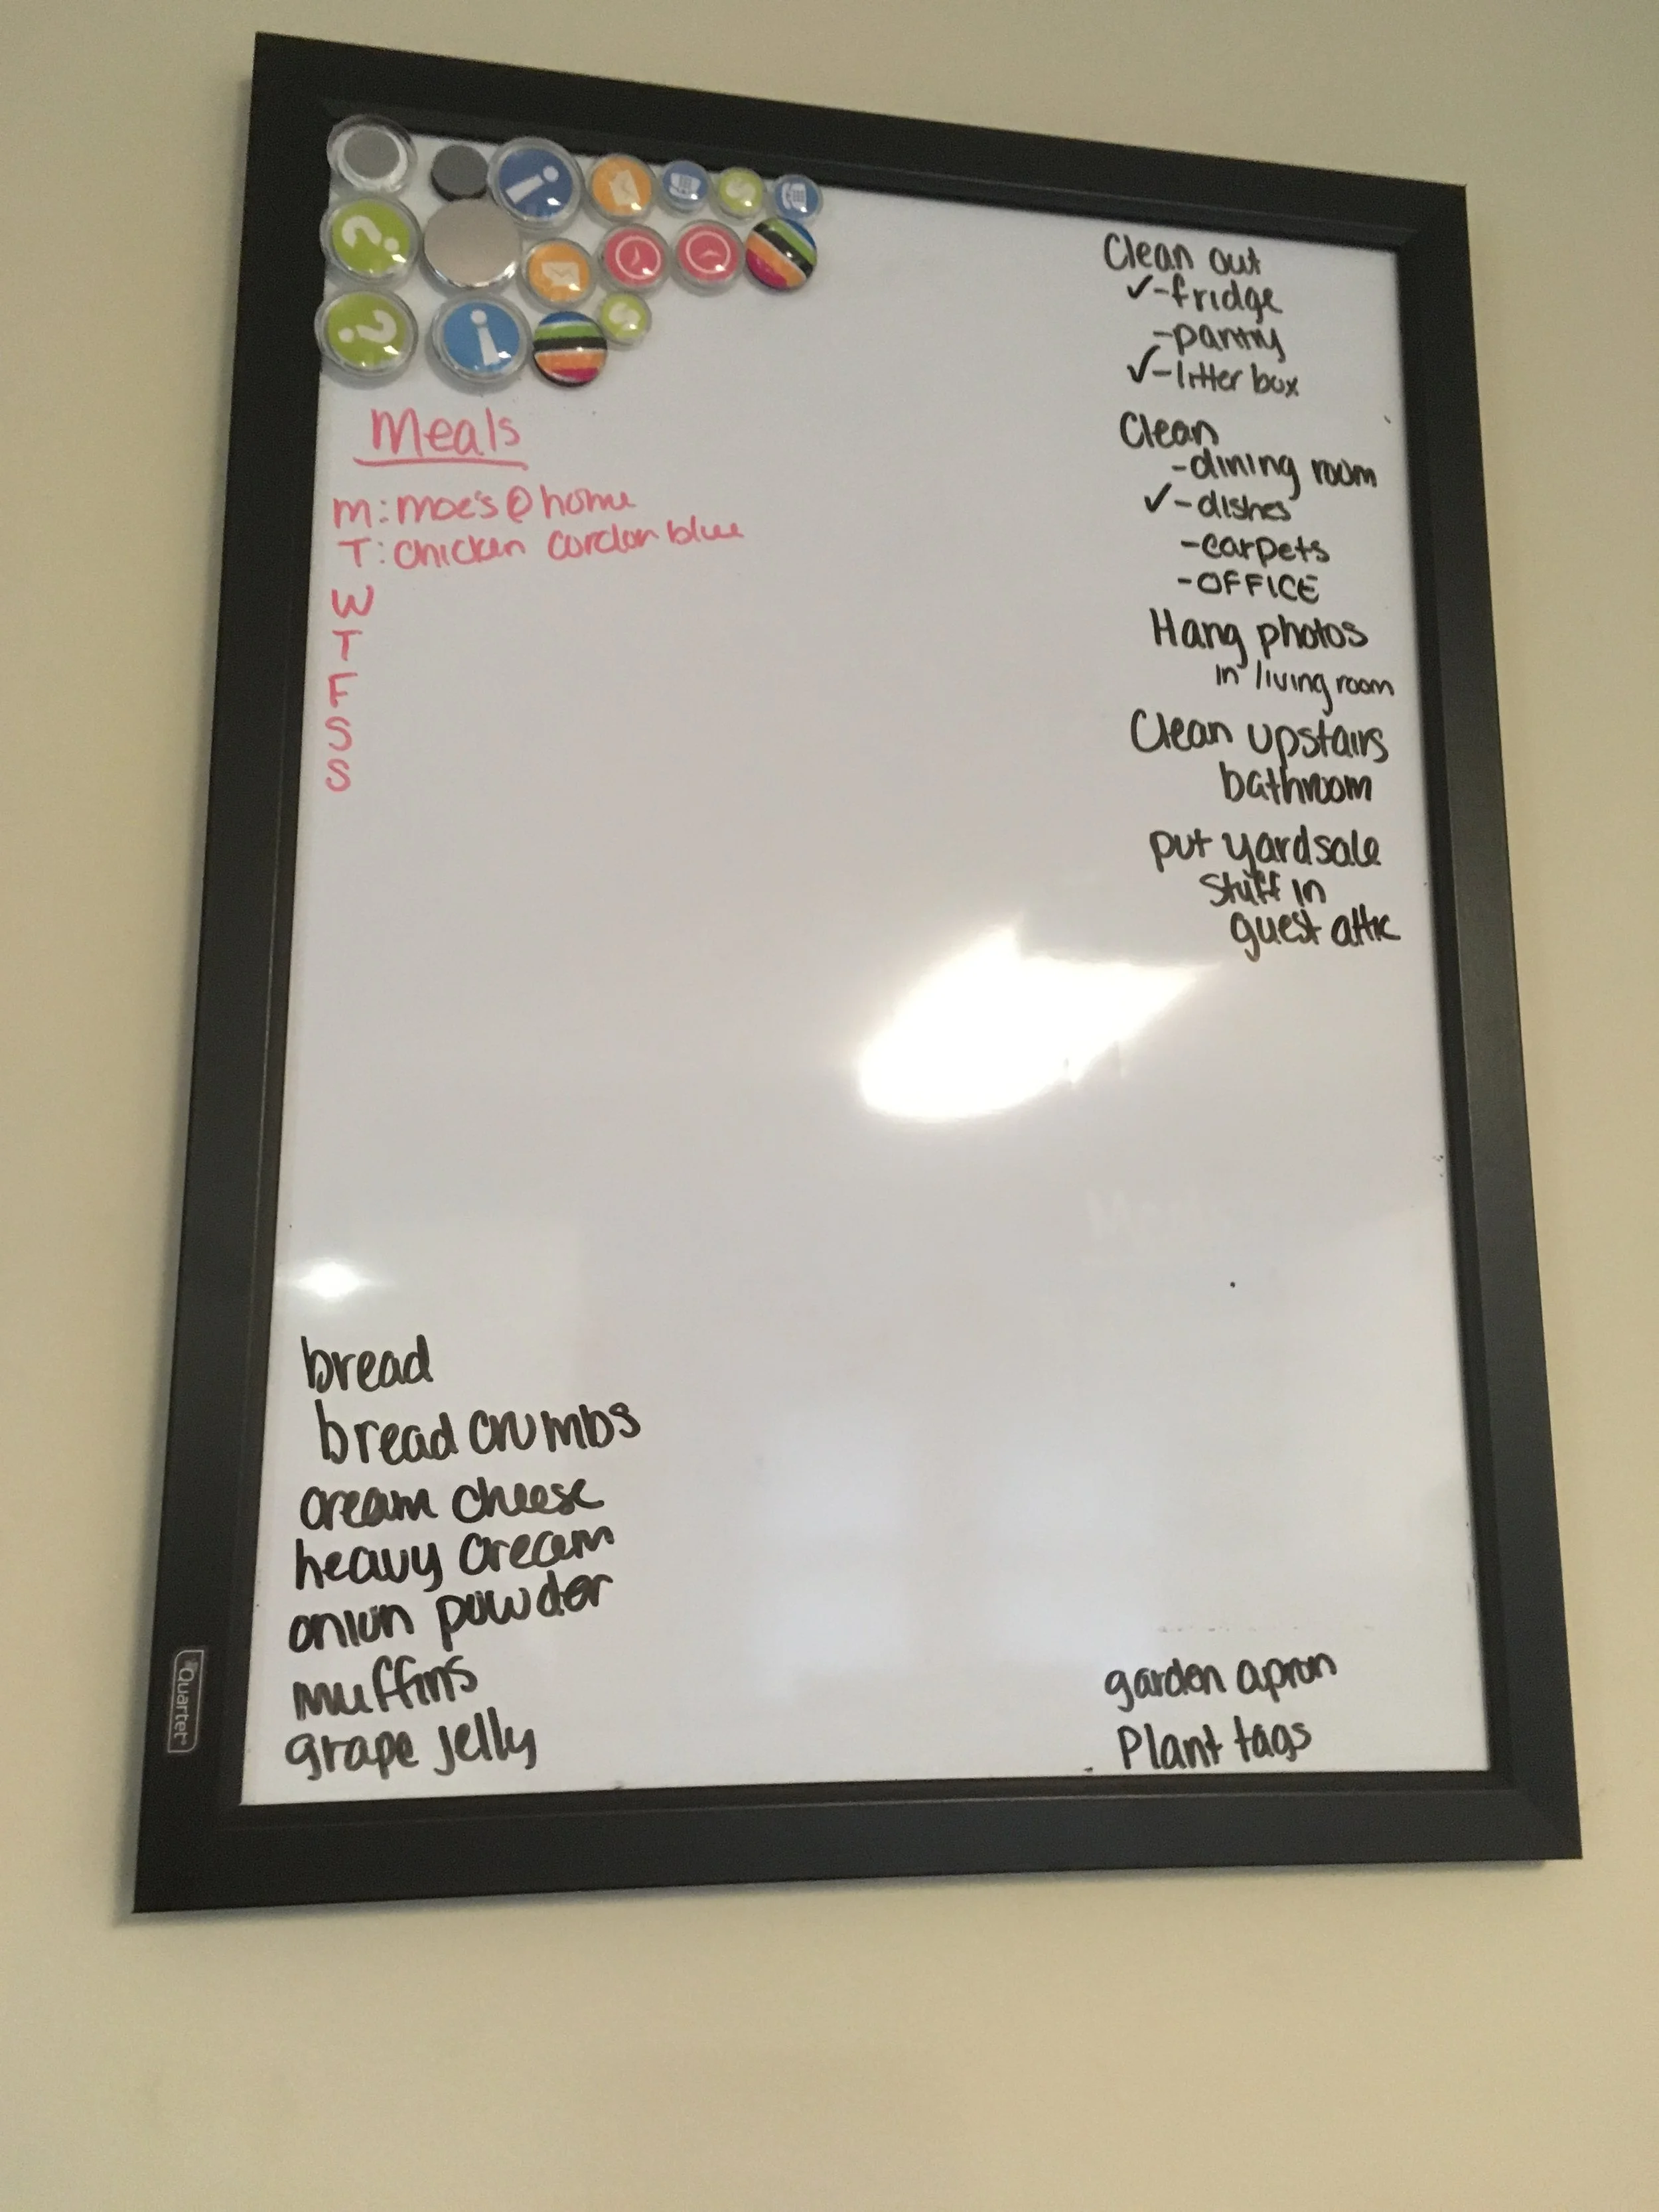 Meals
M: Moe's @ home
T: Chicken cordon blue
W
T
F
S
S
Clean out
✓-fridge
-pantry
✓-litter box
Clean
-dining room
✓-dishes
-carpets
-OFFICE
Hang photos
in living room
Clean upstairs
bathroom
put yardsale
stuff in
guest attic
bread
bread crumbs
cream cheese
heavy cream
onion powder
muffins
grape jelly
garden apron
Plant tags
Quartet